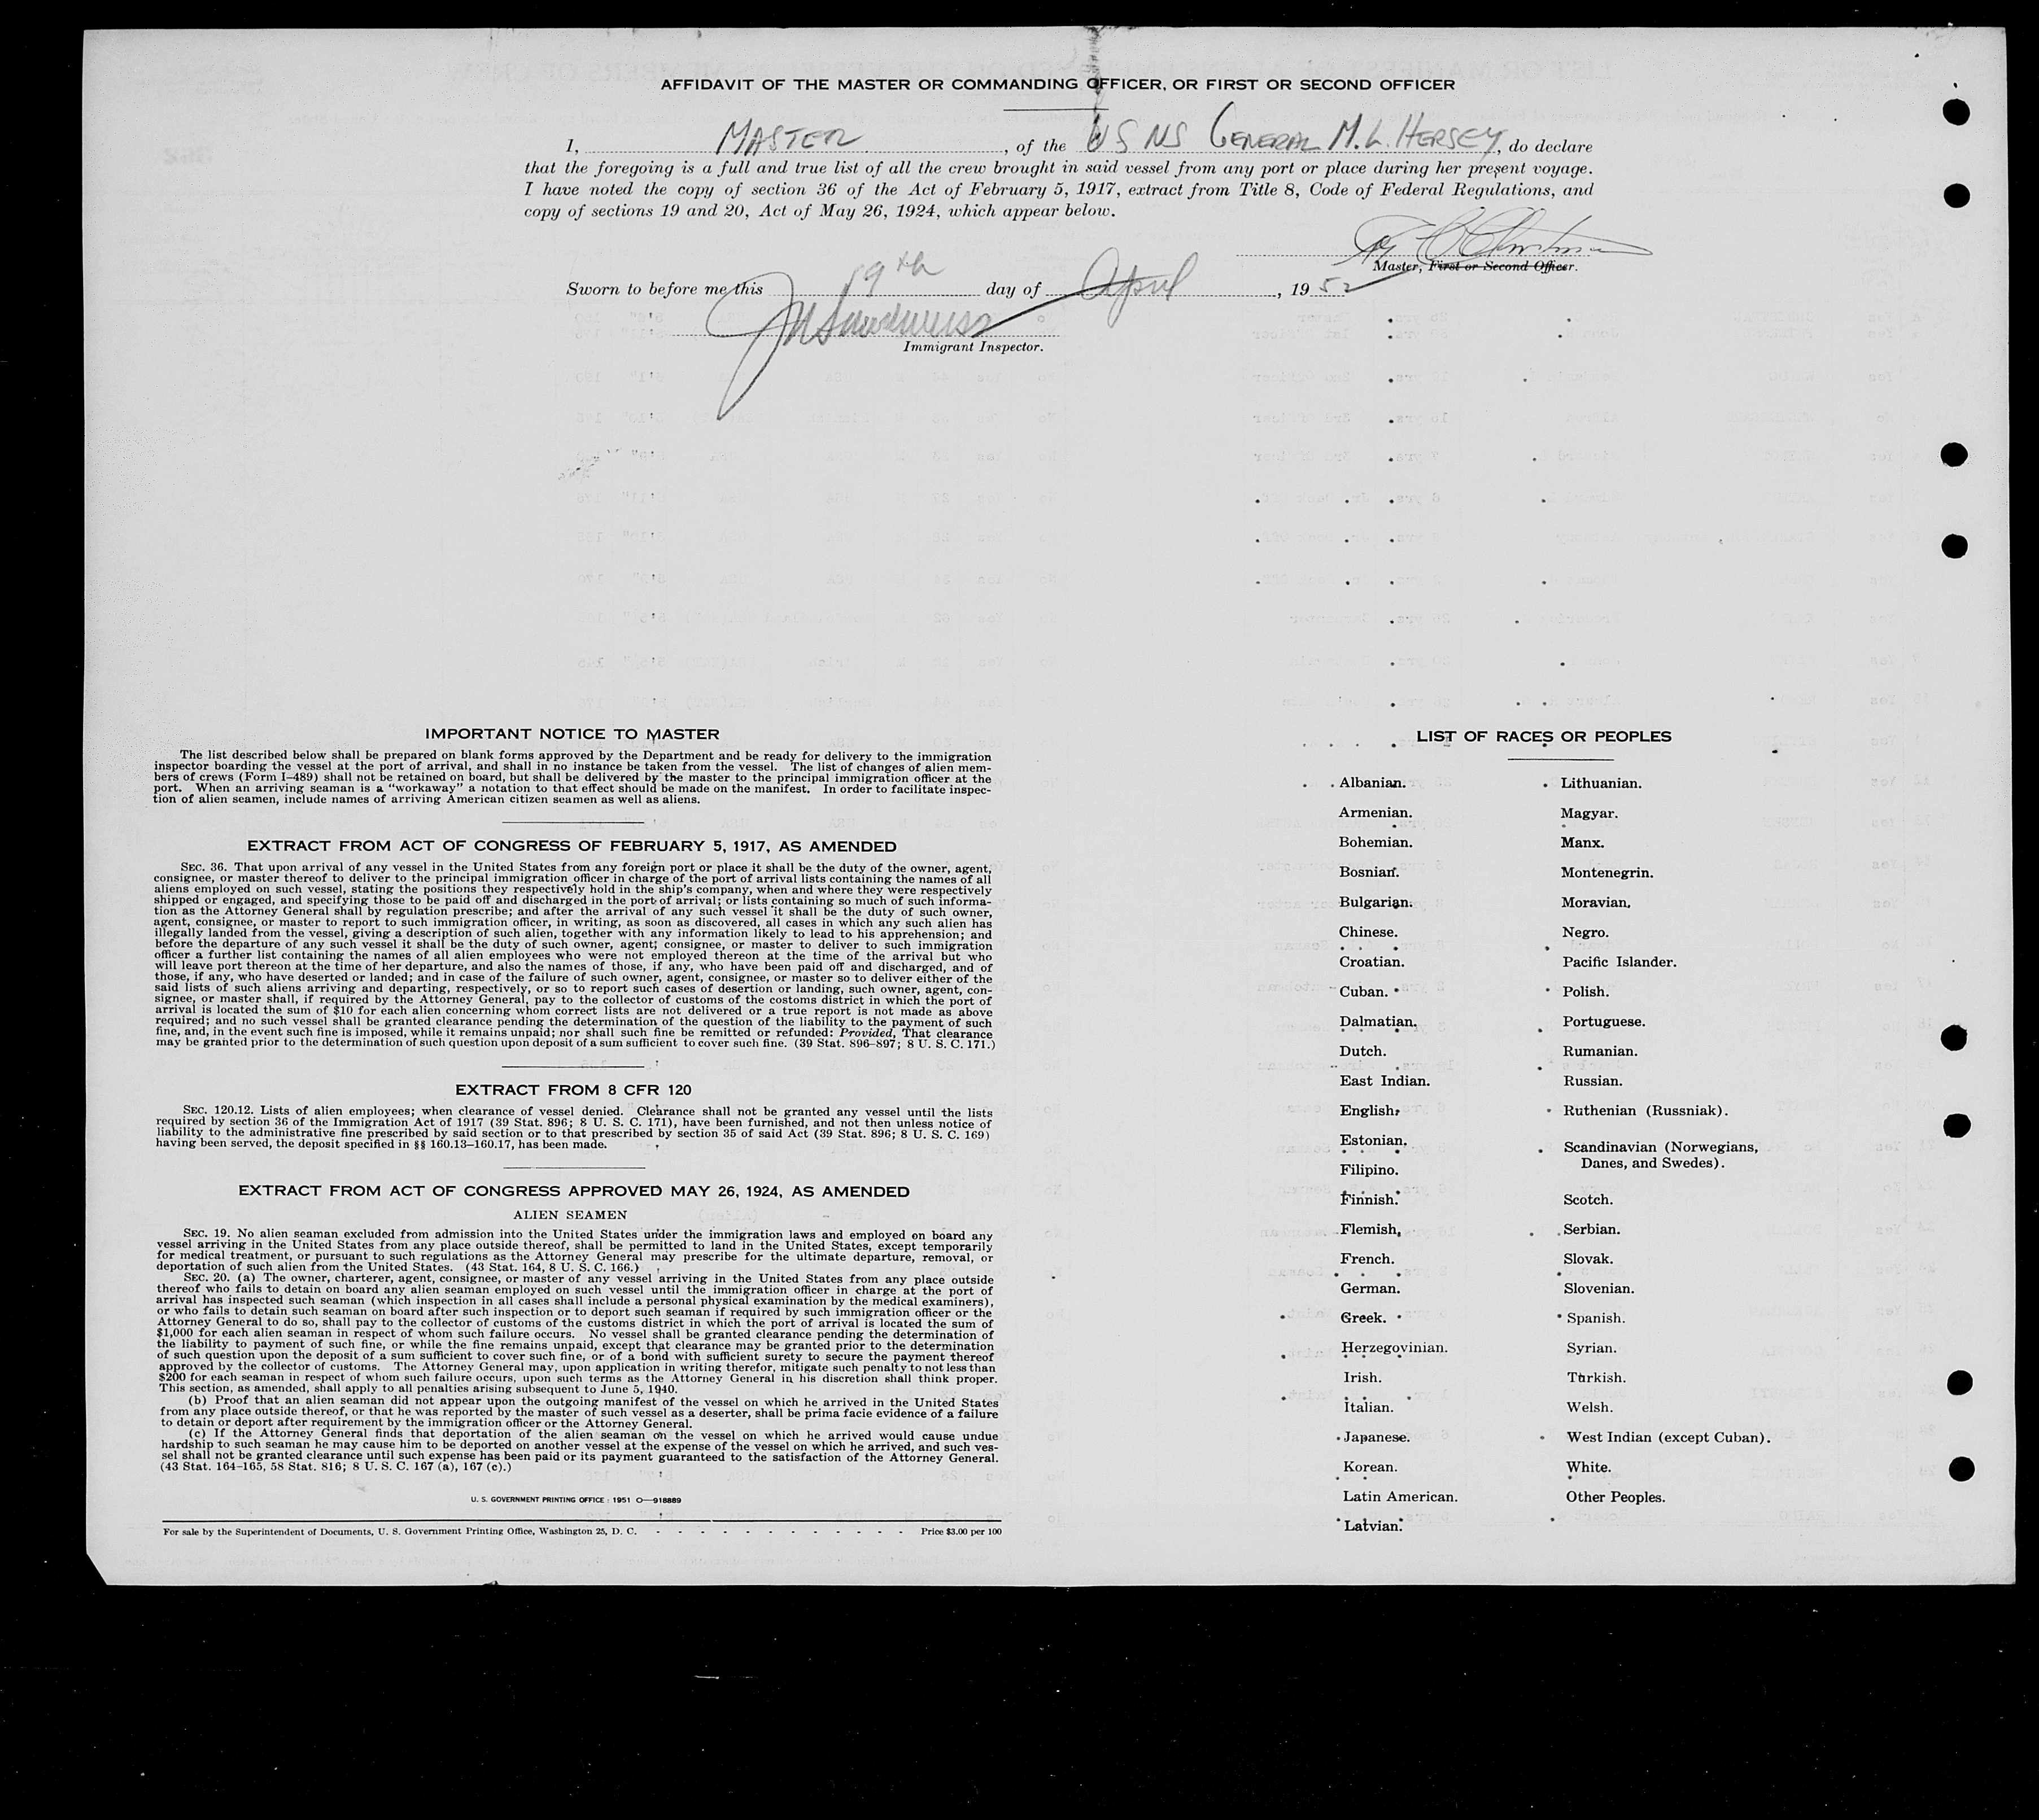 AFFIDAVIT OF THE MASTER OR COMMANDING OFFICER, OR FIRST OR SECOND OFFICER
I, MASTER, of the USNS GENERAL M. L. HERSEY, do declare
that the foregoing is a full and true list of all the crew brought in said vessel from any port or place during her present voyage.
I have noted the copy of section 36 of the Act of February 5, 1917, extract from Title 8, Code of Federal Regulations, and
copy of sections 19 and 20, Act of May 26, 1924, which appear below.
Master, First or Second Officer.
Sworn to before me this 19th day of April, 1952
Immigrant Inspector.
IMPORTANT NOTICE TO MASTER
The list described below shall be prepared on blank forms approved by the Department and be ready for delivery to the immigration
inspector boarding the vessel at the port of arrival, and shall in no instance be taken from the vessel. The list of changes of alien mem-
bers of crews (Form I-489) shall not be retained on board, but shall be delivered by the master to the principal immigration officer at the
port. When an arriving seaman is a "workaway" a notation to that effect should be made on the manifest. In order to facilitate inspec-
tion of alien seamen, include names of arriving American citizen seamen as well as aliens.
EXTRACT FROM ACT OF CONGRESS OF FEBRUARY 5, 1917, AS AMENDED
SEC. 36. That upon arrival of any vessel in the United States from any foreign port or place it shall be the duty of the owner, agent,
consignee, or master thereof to deliver to the principal immigration officer in charge of the port of arrival lists containing the names of all
aliens employed on such vessel, stating the positions they respectively hold in the ship's company, when and where they were respectively
shipped or engaged, and specifying those to be paid off and discharged in the port of arrival; or lists containing so much of such informa-
tion as the Attorney General shall by regulation prescribe; and after the arrival of any such vessel it shall be the duty of such owner,
agent, consignee, or master to report to such immigration officer, in writing, as soon as discovered, all cases in which any such alien has
illegally landed from the vessel, giving a description of such alien, together with any information likely to lead to his apprehension; and
before the departure of any such vessel it shall be the duty of such owner, agent, consignee, or master to deliver to such immigration
officer a further list containing the names of all alien employees who were not employed thereon at the time of the arrival but who
will leave port thereon at the time of her departure, and also the names of those, if any, who have been paid off and discharged, and of
those, if any, who have deserted or landed; and in case of the failure of such owner, agent, consignee, or master so to deliver either of the
said lists of such aliens arriving and departing, respectively, or so to report such cases of desertion or landing, such owner, agent, con-
signee, or master shall, if required by the Attorney General, pay to the collector of customs of the costoms district in which the port of
arrival is located the sum of $10 for each alien concerning whom correct lists are not delivered or a true report is not made as above
required; and no such vessel shall be granted clearance pending the determination of the question of the liability to the payment of such
fine, and, in the event such fine is imposed, while it remains unpaid; nor shall such fine be remitted or refunded: Provided, That clearance
may be granted prior to the determination of such question upon deposit of a sum sufficient to cover such fine. (39 Stat. 896-897; 8 U. S. C. 171.)
EXTRACT FROM 8 CFR 120
SEC. 120.12. Lists of alien employees; when clearance of vessel denied. Clearance shall not be granted any vessel until the lists
required by section 36 of the Immigration Act of 1917 (39 Stat. 896; 8 U. S. C. 171), have been furnished, and not then unless notice of
liability to the administrative fine prescribed by said section or to that prescribed by section 35 of said Act (39 Stat. 896; 8 U. S. C. 169)
having been served, the deposit specified in §§ 160.13-160.17, has been made.
EXTRACT FROM ACT OF CONGRESS APPROVED MAY 26, 1924, AS AMENDED
ALIEN SEAMEN
SEC. 19. No alien seaman excluded from admission into the United States under the immigration laws and employed on board any
vessel arriving in the United States from any place outside thereof, shall be permitted to land in the United States, except temporarily
for medical treatment, or pursuant to such regulations as the Attorney General may prescribe for the ultimate departure, removal, or
deportation of such alien from the United States. (43 Stat. 164, 8 U. S. C. 166.)
SEC. 20. (a) The owner, charterer, agent, consignee, or master of any vessel arriving in the United States from any place outside
thereof who fails to detain on board any alien seaman employed on such vessel until the immigration officer in charge at the port of
arrival has inspected such seaman (which inspection in all cases shall include a personal physical examination by the medical examiners),
or who fails to detain such seaman on board after such inspection or to deport such seaman if required by such immigration officer or the
Attorney General to do so, shall pay to the collector of customs of the customs district in which the port of arrival is located the sum of
$1,000 for each alien seaman in respect of whom such failure occurs. No vessel shall be granted clearance pending the determination of
the liability to payment of such fine, or while the fine remains unpaid, except that clearance may be granted prior to the determination
of such question upon the deposit of a sum sufficient to cover such fine, or of a bond with sufficient surety to secure the payment thereof
approved by the collector of customs. The Attorney General may, upon application in writing therefor, mitigate such penalty to not less than
$200 for each seaman in respect of whom such failure occurs, upon such terms as the Attorney General in his discretion shall think proper.
This section, as amended, shall apply to all penalties arising subsequent to June 5, 1940.
(b) Proof that an alien seaman did not appear upon the outgoing manifest of the vessel on which he arrived in the United States
from any place outside thereof, or that he was reported by the master of such vessel as a deserter, shall be prima facie evidence of a failure
to detain or deport after requirement by the immigration officer or the Attorney General.
(c) If the Attorney General finds that deportation of the alien seaman on the vessel on which he arrived would cause undue
hardship to such seaman he may cause him to be deported on another vessel at the expense of the vessel on which he arrived, and such ves-
sel shall not be granted clearance until such expense has been paid or its payment guaranteed to the satisfaction of the Attorney General.
(43 Stat. 164-165, 58 Stat. 816; 8 U. S. C. 167 (a), 167 (c).)
U. S. GOVERNMENT PRINTING OFFICE : 1951 O—918889
For sale by the Superintendent of Documents, U. S. Government Printing Office, Washington 25, D. C. - - - - - - - - - - - - Price $3.00 per 100
LIST OF RACES OR PEOPLES
Albanian.
Armenian.
Bohemian.
Bosnian.
Bulgarian.
Chinese.
Croatian.
Cuban.
Dalmatian.
Dutch.
East Indian.
English.
Estonian.
Filipino.
Finnish.
Flemish.
French.
German.
Greek.
Herzegovinian.
Irish.
Italian.
Japanese.
Korean.
Latin American.
Latvian.
Lithuanian.
Magyar.
Manx.
Montenegrin.
Moravian.
Negro.
Pacific Islander.
Polish.
Portuguese.
Rumanian.
Russian.
Ruthenian (Russniak).
Scandinavian (Norwegians,
Danes, and Swedes).
Scotch.
Serbian.
Slovak.
Slovenian.
Spanish.
Syrian.
Turkish.
Welsh.
West Indian (except Cuban).
White.
Other Peoples.